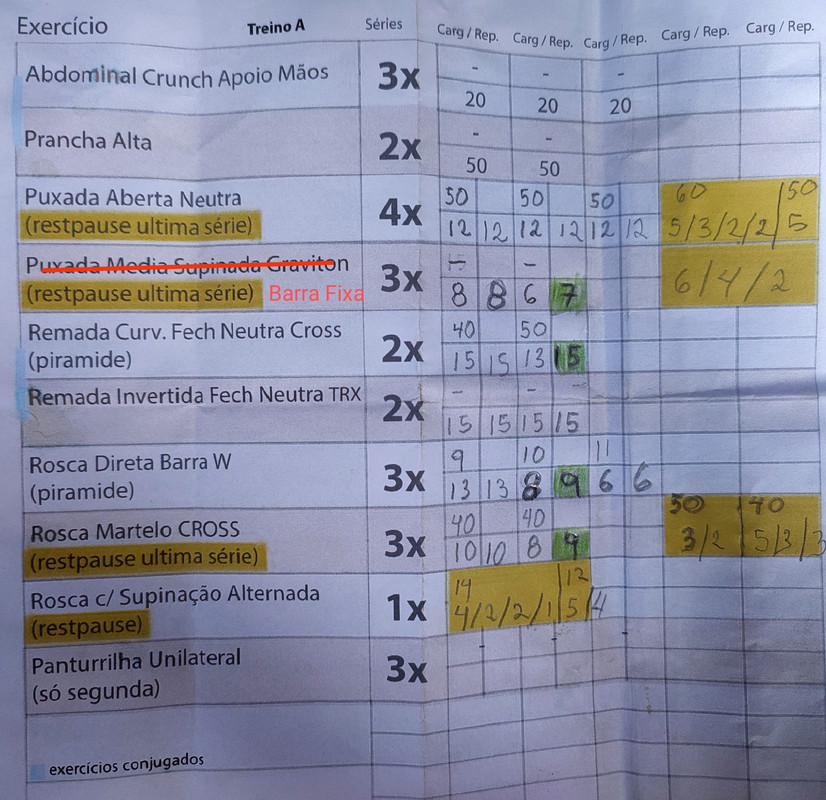 Exercício Treino A Séries Carg / Rep. Carg / Rep. Carg / Rep. Carg / Rep. Carg / Rep.
Abdominal Crunch Apoio Mãos 3x - - -
20 20 20
Prancha Alta 2x - -
50 50
Puxada Aberta Neutra 4x 50 50 50 60 / 50
(restpause ultima série) 12 12 12 12 12 12 5/3/2/2/ 5
Puxada Media Supinada Graviton 3x - -
(restpause ultima série) Barra Fixa 8 8 6 7 6/4/2
Remada Curv. Fech Neutra Cross 2x 40 50
(piramide) 15 15 13 15
Remada Invertida Fech Neutra TRX 2x - - -
15 15 15 15
Rosca Direta Barra W 3x 9 10 11
(piramide) 13 13 8 9 6 6
Rosca Martelo CROSS 3x 40 40 50 40
(restpause ultima série) 10 10 8 9 3/2 5/3/3
Rosca c/ Supinação Alternada 1x 14 12
(restpause) 4/2/2/1 5/4
Panturrilha Unilateral 3x - - -
(só segunda)
exercícios conjugados